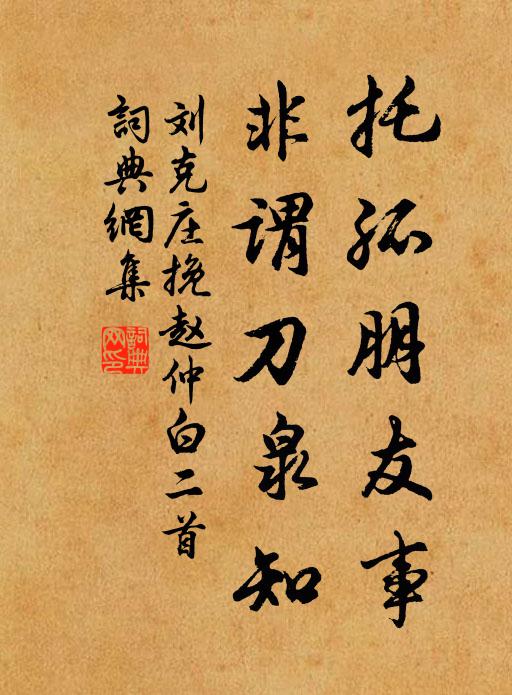 托孤朋友事
非谓刀泉知
刘克庄挽赵仲白二首
詞典網集
詞典網印